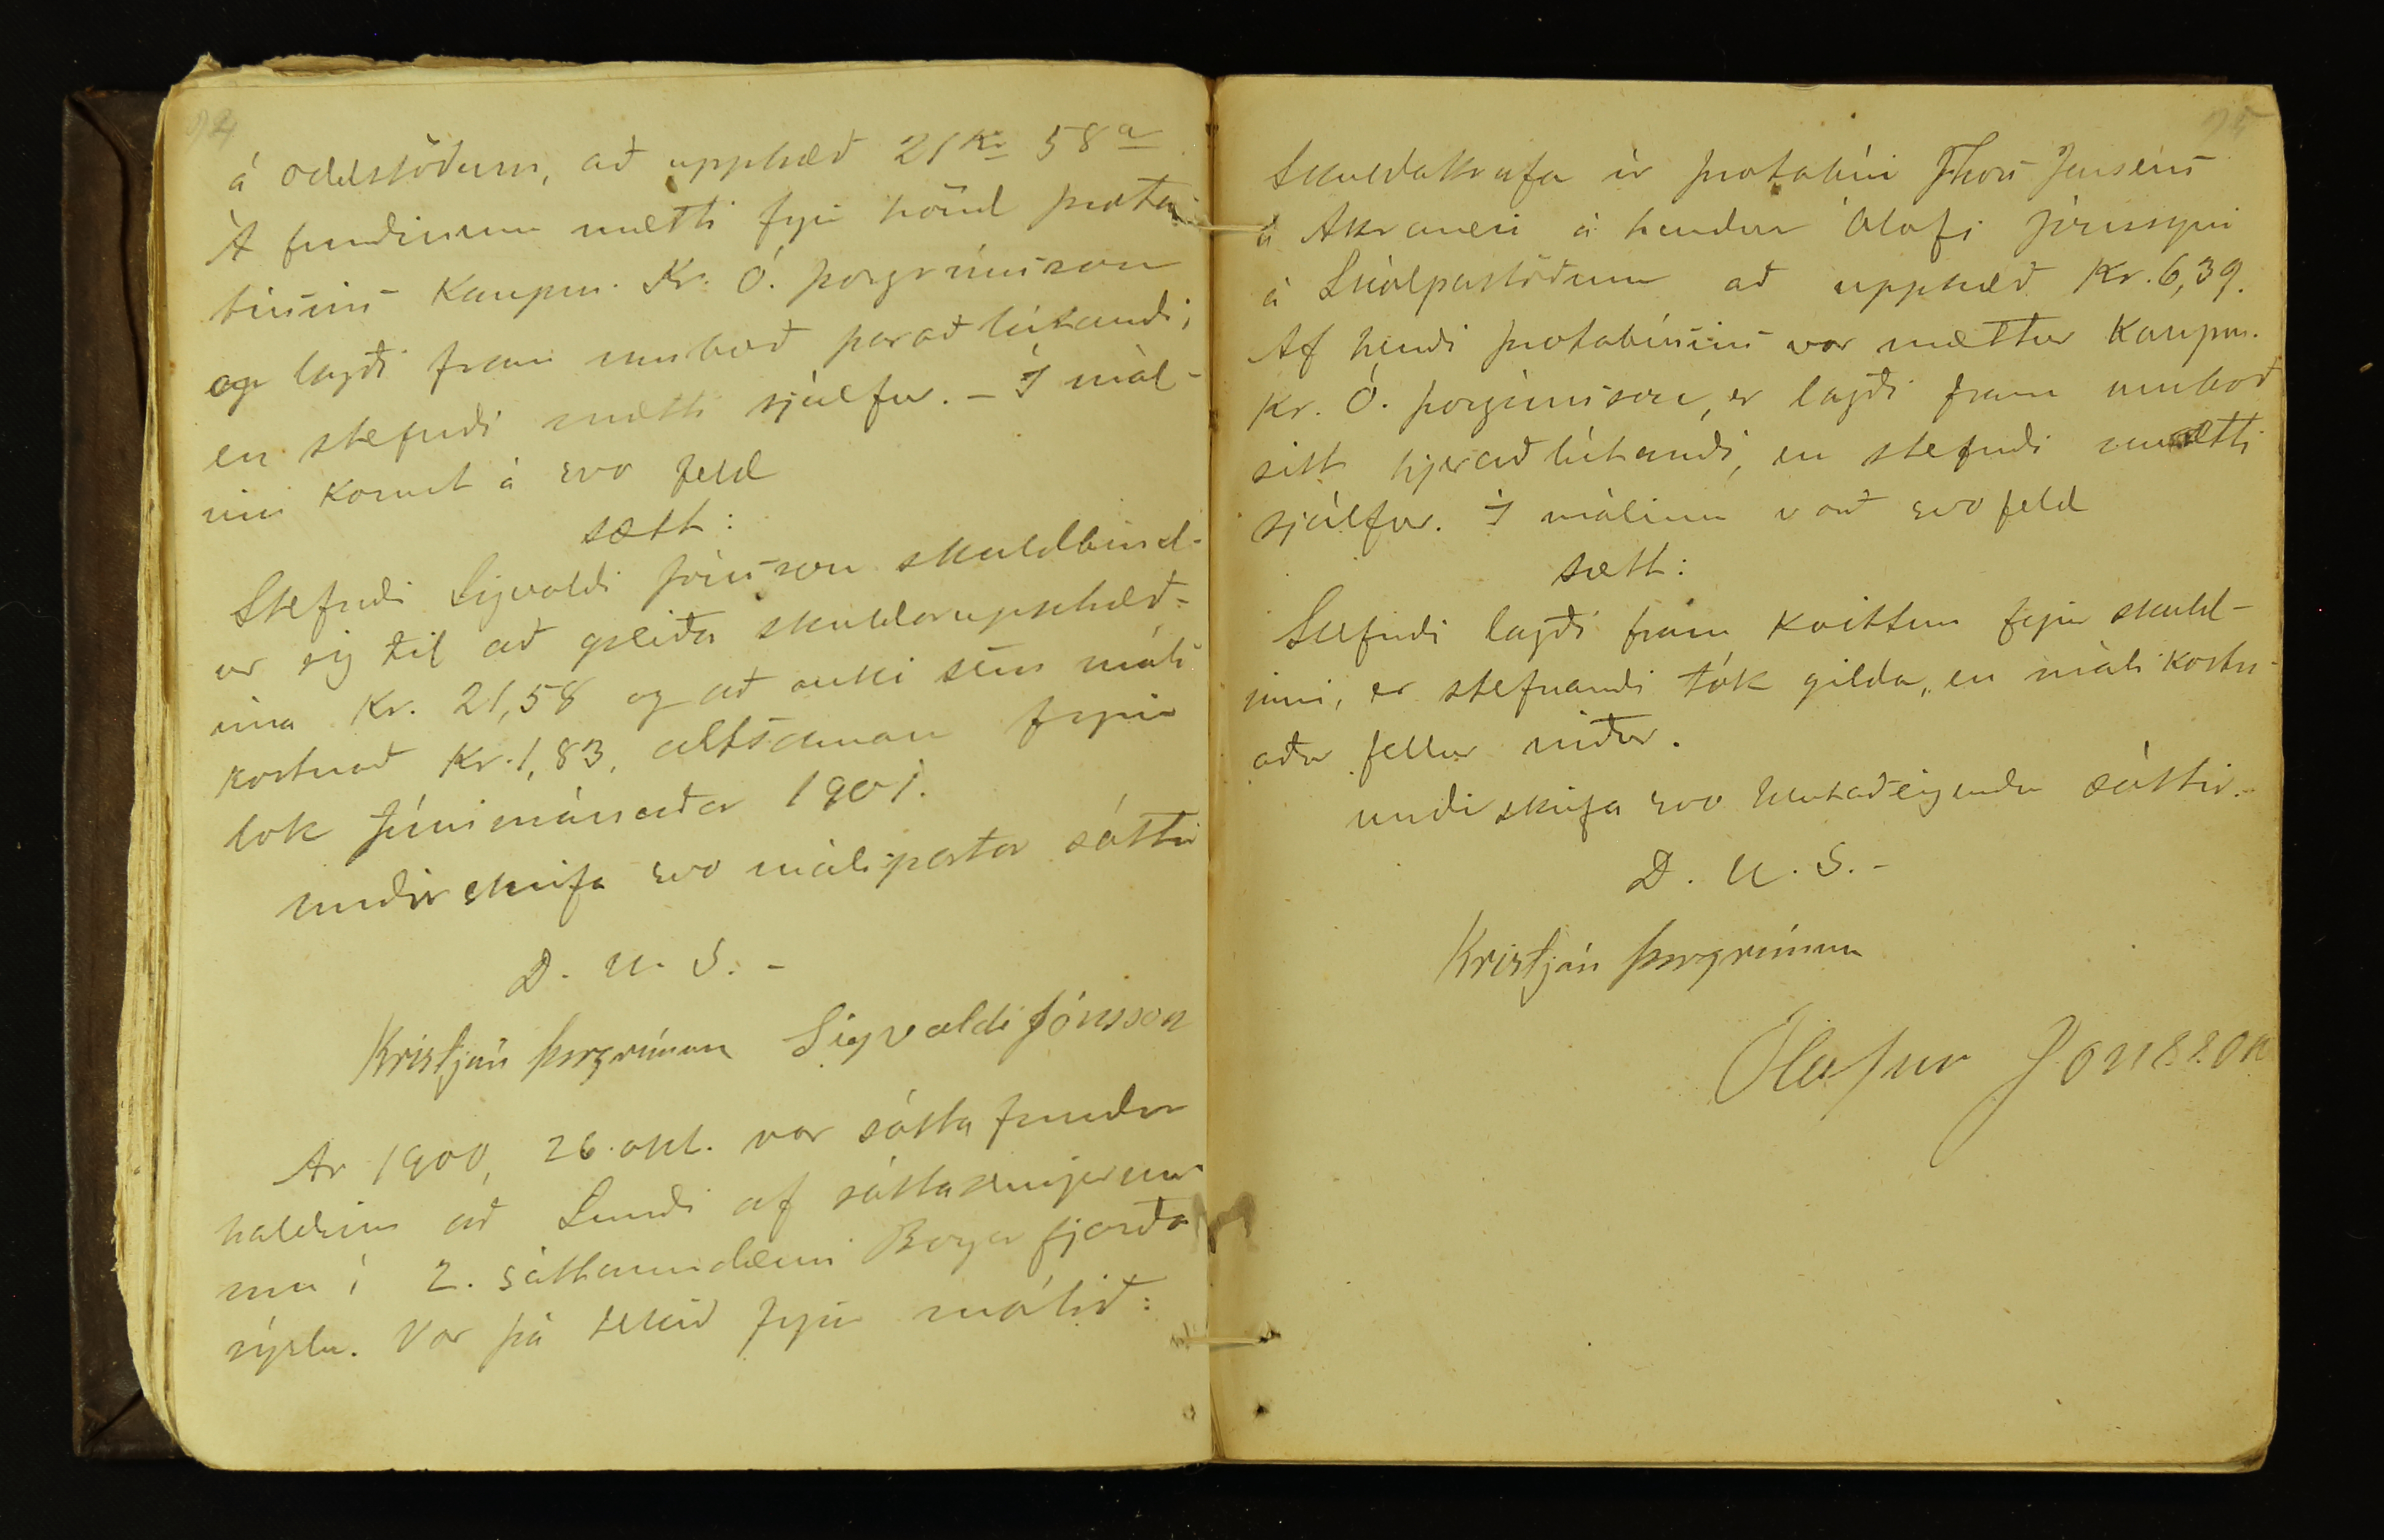 94
á Oddstöðum, að upphæð 21 Kr 58 a
Á fundinum mætti fyrir hönd þrota
búsins Kaupm. Kr. Ó. Þorgrímsson
og lagði fram umboð þaraðlútandi,
en stefndi mætti sjálfur. – Í mál-
inu komst á svo feld
sætt:
Stefndi Sigvaldi Jónsson skuldbind-
ur sig til að greiða skuldarupphæð-
ina Kr. 21,58 og að auki sem máls
kostnað Kr. 1,83, altsaman fyrir
lok Júnimánaðar 1901.
undirskrifa svo málspartar sáttir
D. U. S. –
Kristján Þorgrímsson Sigvaldi Jónsson
Ár 1900, 26. okt. var sátta fundur
haldinn að Lundi af sáttasemjurum
um í 2. sáttaumdæmi Borgarfjarðar
sýslu. Var þá tekið fyrir málið:
95
Skuldakrafa úr þrotabúi Thors Jensens
á Akranesi á hendur Ólafi Jónssyni
á Skálpastöðum að upphæð Kr. 6,39.
Af hendi þrotabúsins var mættur Kaupm.
Kr. Ó. Þorgrímsson, er lagði fram umboð
sitt hjeraðlútandi, en stefndi mætti
sjálfur. Í málinu varð svofeld
sætt:
Stefndi lagði fram kvittun fyrir skuld-
inni, er stefnandi tók gilda, en málskostn-
aður fellur niður.
undirskrifa svo hlutaðeigendur sáttir. –
D. U. S. –
Kristján Þorgrímsson
Ólafur Jónsson